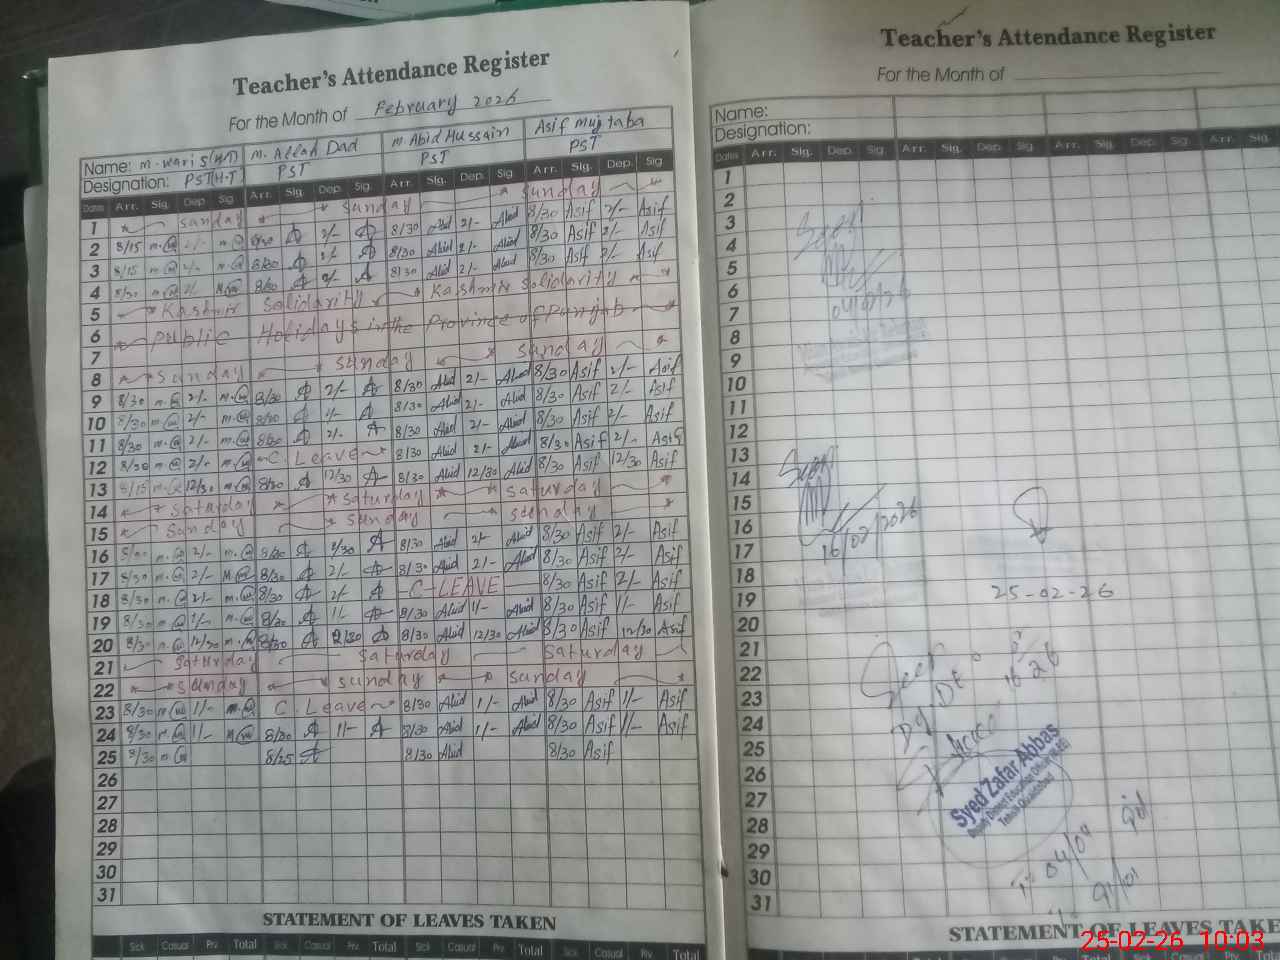 Teacher's Attendance Register
For the Month of February 2026
Name: M. Waris (H.T) M. Allah Dad M. Abid Hussain Asif Mujtaba
Designation: PST(H.T) PST PST PST
Dates Arr. Sig. Dep. Sig. Arr. Sig. Dep. Sig. Arr. Sig. Dep. Sig. Arr. Sig. Dep. Sig
1 Sunday Sunday Sunday
2 8/15 2/- 8/30 2/- 8/30 Abid 2/- Abid 8/30 Asif 2/- Asif
3 8/15 2/- 8/30 2/- 8/30 Abid 2/- Abid 8/30 Asif 2/- Asif
4 8/30 2/- 8/30 2/- 8/30 Abid 2/- Abid 8/30 Asif 2/- Asif
5 Kashmir Solidarity Kashmir Solidarity
6 Public Holidays in the Province of Punjab
7
8 Sunday Sunday Sunday
9 8/30 2/- 8/30 2/- 8/30 Abid 2/- Abid 8/30 Asif 2/- Asif
10 8/30 2/- 8/30 2/- 8/30 Abid 2/- Abid 8/30 Asif 2/- Asif
11 8/30 2/- 8/30 2/- 8/30 Abid 2/- Abid 8/30 Asif 2/- Asif
12 8/30 2/- C. Leave 8/30 Abid 2/- Abid 8/30 Asif 2/- Asif
13 8/15 12/30 8/30 12/30 8/30 Abid 12/30 Abid 8/30 Asif 12/30 Asif
14 Saturday Saturday Saturday
15 Sunday Sunday Sunday
16 2/- 8/30 8/30 Abid 2/- Abid 8/30 Asif 2/- Asif
17 8/30 2/- 8/30 2/- 8/30 Abid 2/- Abid 8/30 Asif 2/- Asif
18 8/30 2/- 8/30 2/- C-LEAVE 8/30 Asif 2/- Asif
19 8/30 1/- 8/30 1/- 8/30 Abid 1/- Abid 8/30 Asif 1/- Asif
20 8/30 12/30 8/30 8/30 Abid 12/30 Abid 8/30 Asif 12/30 Asif
21 Saturday Saturday Saturday
22 Sunday Sunday Sunday
23 8/30 1/- C. Leave 8/30 Abid 1/- Abid 8/30 Asif 1/- Asif
24 8/30 1/- 8/30 1/- 8/30 Abid 1/- Abid 8/30 Asif 1/- Asif
25 8/30 8/25 8/30 Abid 8/30 Asif
26
27
28
29
30
31
STATEMENT OF LEAVES TAKEN
Sick Casual Prv. Total Sick Casual Prv. Total Sick Casual Prv. Total Sick Casual Prv. Total
Teacher's Attendance Register
For the Month of
Name:
Designation:
Dates Arr. Sig. Dep. Sig. Arr. Sig. Dep. Sig. Arr. Sig. Dep. Sig. Arr. Sig.
1
2
3
4
5
6
7
8
9
10
11
12
13
14
15
16
17
18
19
20
21
22
23
24
25
26
27
28
29
30
31
16/02/2026
25-02-26
Syed Zafar Abbas
STATEMENT OF LEAVES TAKE
Sick Casual Prv. Total Sick Casual Prv. Total Sick
25-02-26 10:03